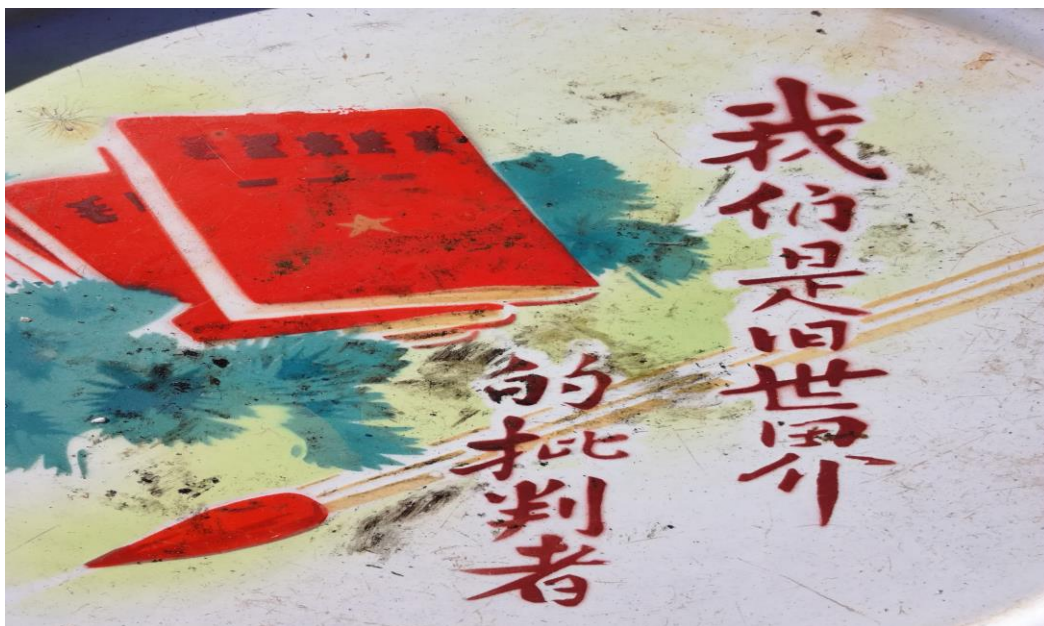 我们是旧世界
的批判者